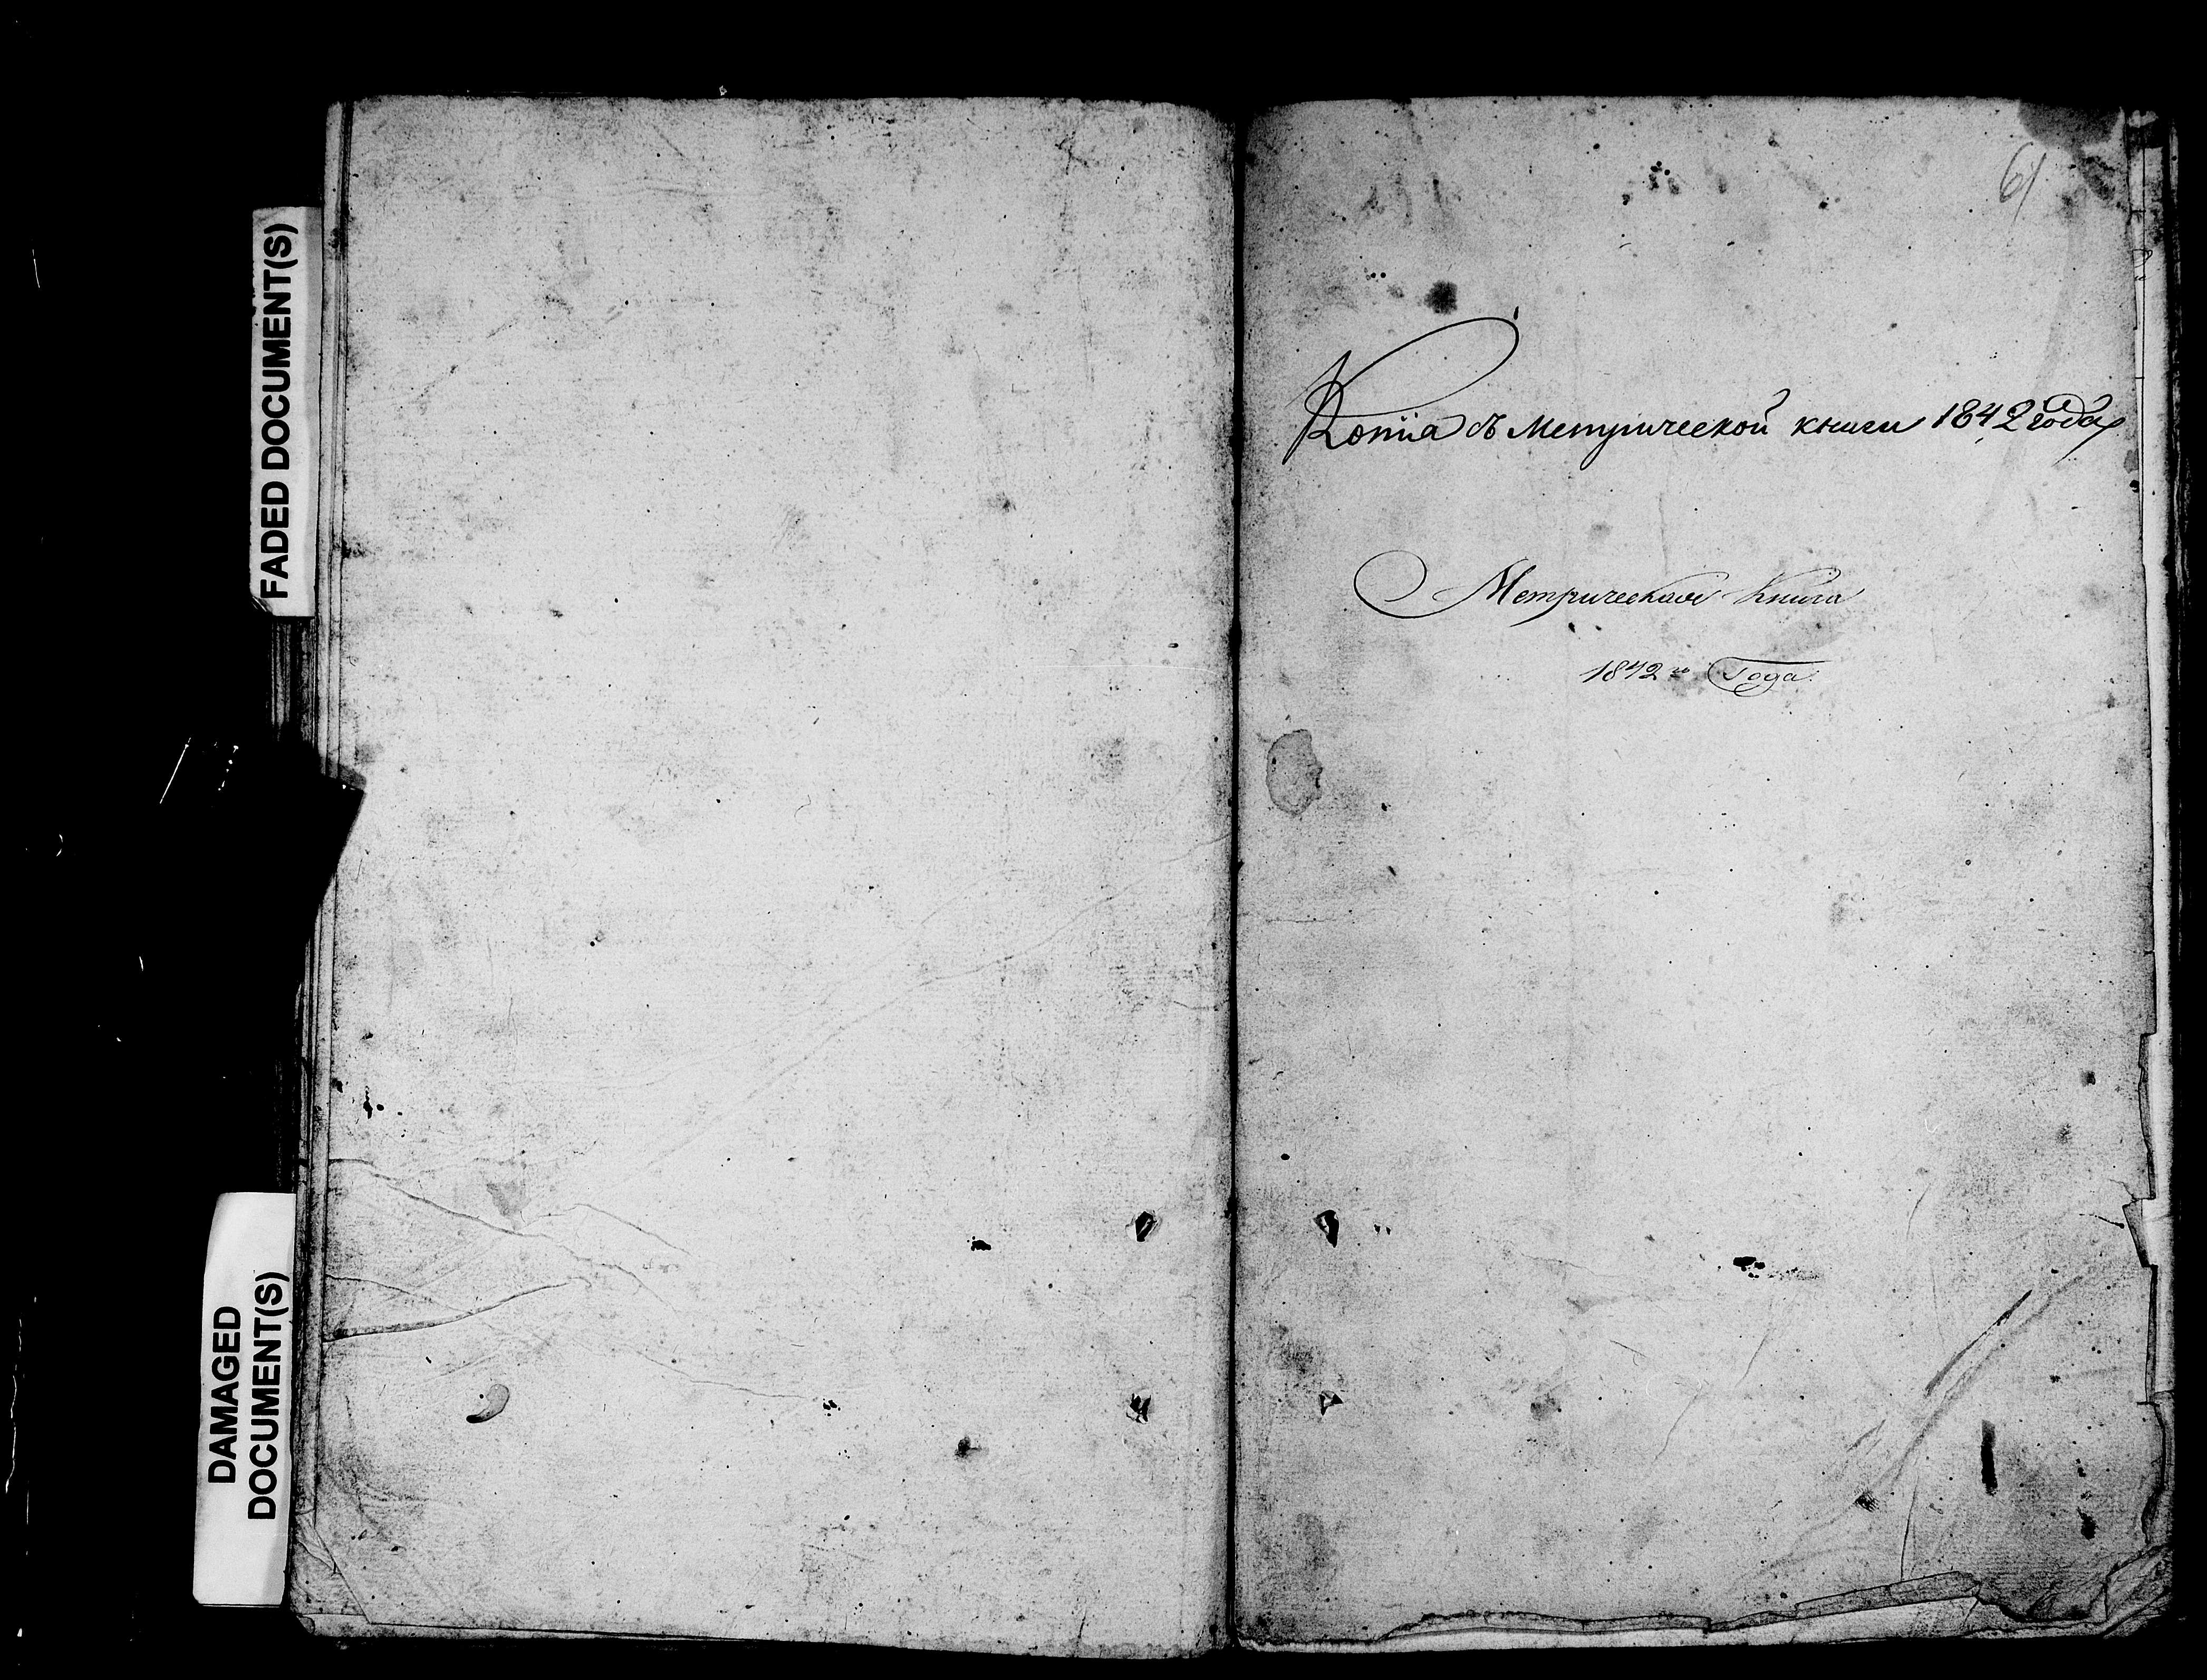 FADED DOCUMENT(S)
DAMAGED
DOCUMENT(S)
61
Копиія съ метрической книги 1842 года
Метрическая Книга
1842го Года